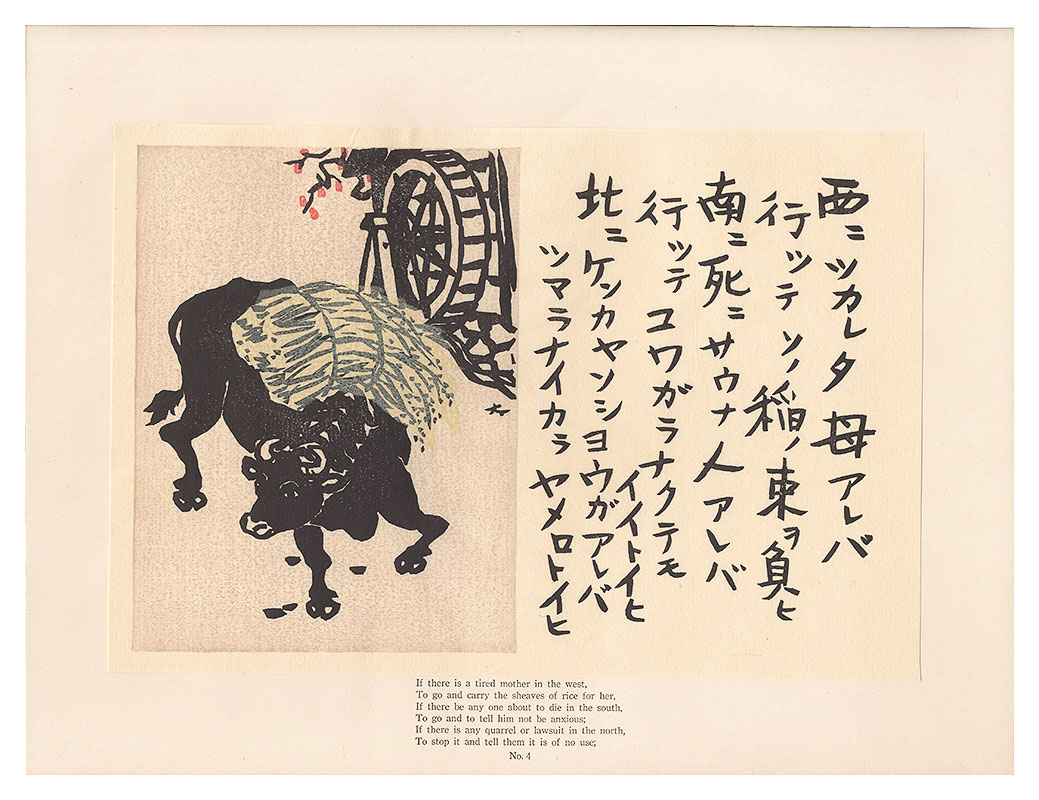 西ニツカレタ母アレバ
行ッテソノ稲ノ束ヲ負ヒ
南ニ死ニサウナ人アレバ
行ッテコワガラナクテモ
イイトイヒ
北ニケンカヤソシヨウガアレバ
ツマラナイカラヤメロトイヒ
If there is a tired mother in the west,
To go and carry the sheaves of rice for her,
If there be any one about to die in the south,
To go and to tell him not be anxious;
If there is any quarrel or lawsuit in the north,
To stop it and tell them it is of no use;
No. 4